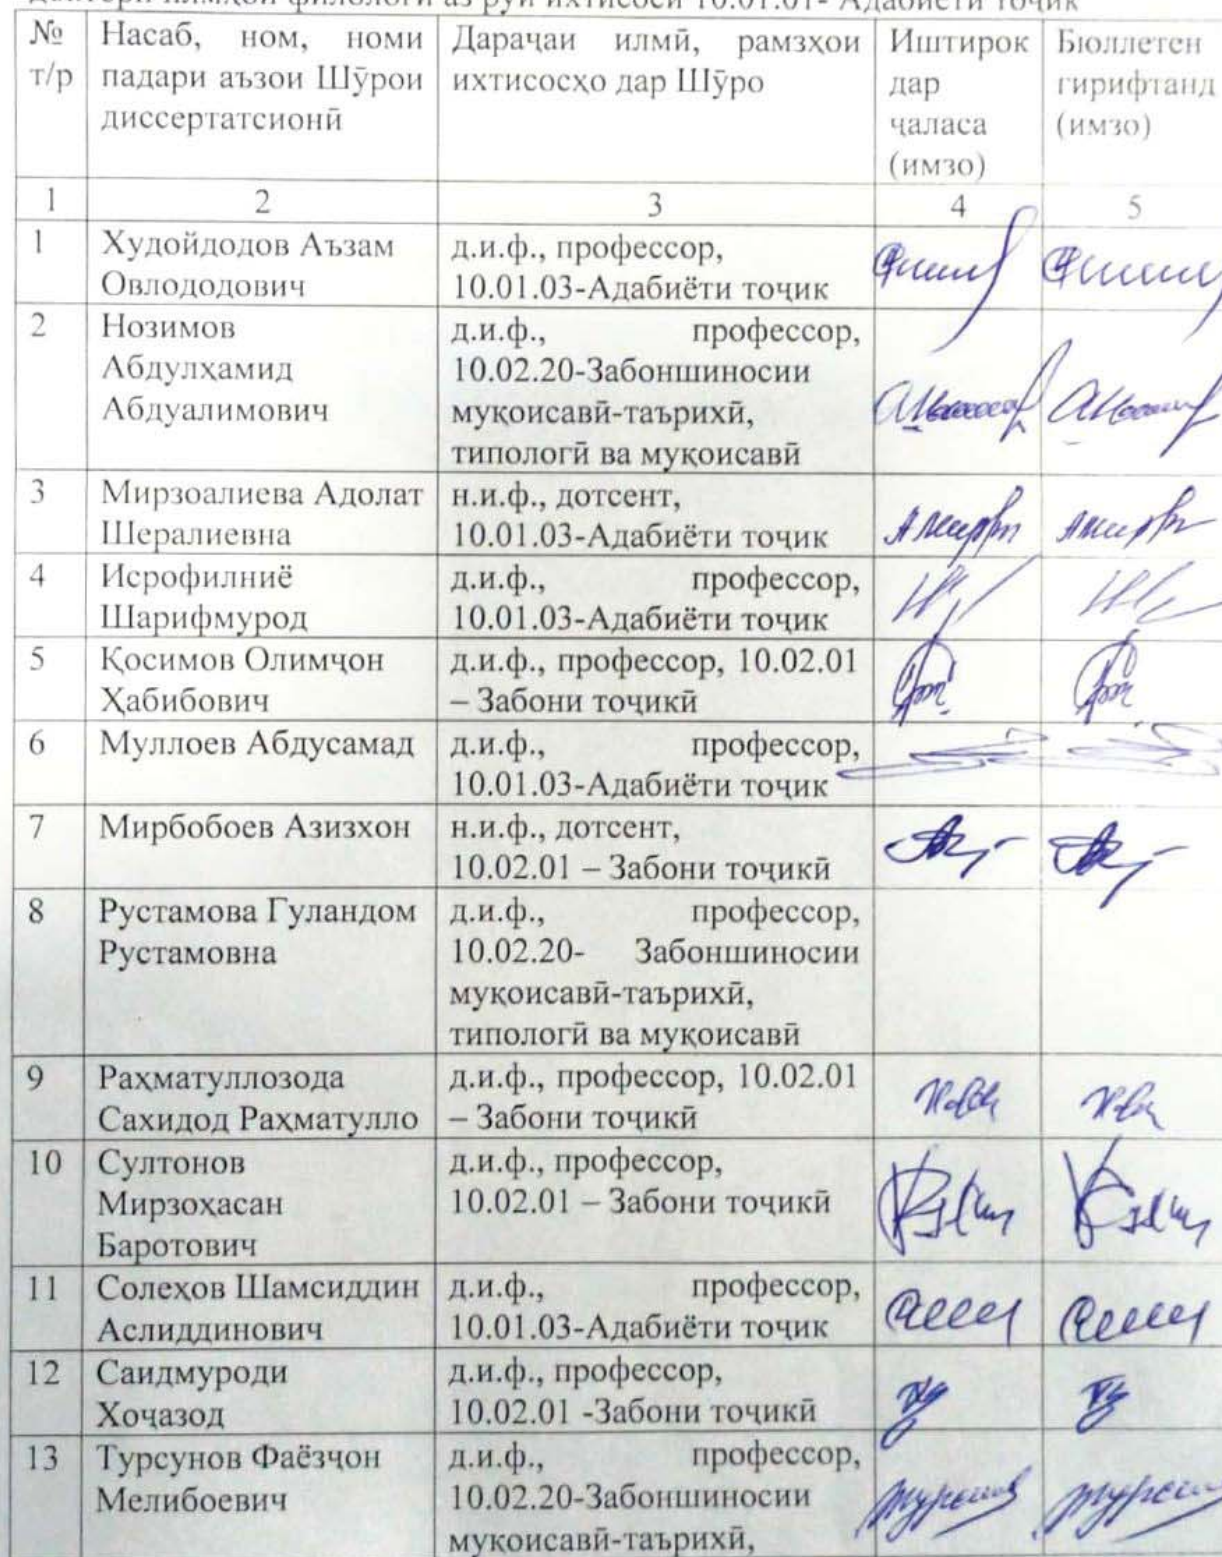 доктори илмҳои филологӣ аз рӯи ихтисоси 10.01.01- Адабиёти тоҷик
№ т/р
Насаб, ном, номи
падари аъзои Шӯрои
диссертатсионӣ
Дараҷаи илмӣ, рамзҳои
ихтисосҳо дар Шӯро
Иштирок
дар
ҷаласа
(имзо)
Бюллетен
гирифтанд
(имзо)
1 2 3 4 5
1
Худойдодов Аъзам
Овлододович
д.и.ф., профессор,
10.01.03-Адабиёти тоҷик
2
Нозимов
Абдулҳамид
Абдуалимович
д.и.ф., профессор,
10.02.20-Забоншиносии
муқоисавӣ-таърихӣ,
типологӣ ва муқоисавӣ
3
Мирзоалиева Адолат
Шералиевна
н.и.ф., дотсент,
10.01.03-Адабиёти тоҷик
4
Исрофилниё
Шарифмурод
д.и.ф., профессор,
10.01.03-Адабиёти тоҷик
5
Қосимов Олимҷон
Ҳабибович
д.и.ф., профессор, 10.02.01
– Забони тоҷикӣ
6
Муллоев Абдусамад
д.и.ф., профессор,
10.01.03-Адабиёти тоҷик
7
Мирбобоев Азизхон
н.и.ф., дотсент,
10.02.01 – Забони тоҷикӣ
8
Рустамова Гуландом
Рустамовна
д.и.ф., профессор,
10.02.20- Забоншиносии
муқоисавӣ-таърихӣ,
типологӣ ва муқоисавӣ
9
Раҳматуллозода
Сахидод Раҳматулло
д.и.ф., профессор, 10.02.01
– Забони тоҷикӣ
10
Султонов
Мирзоҳасан
Баротович
д.и.ф., профессор,
10.02.01 – Забони тоҷикӣ
11
Солеҳов Шамсиддин
Аслиддинович
д.и.ф., профессор,
10.01.03-Адабиёти тоҷик
12
Саидмуроди
Хоҷазод
д.и.ф., профессор,
10.02.01 -Забони тоҷикӣ
13
Турсунов Фаёзҷон
Мелибоевич
д.и.ф., профессор,
10.02.20-Забоншиносии
муқоисавӣ-таърихӣ,